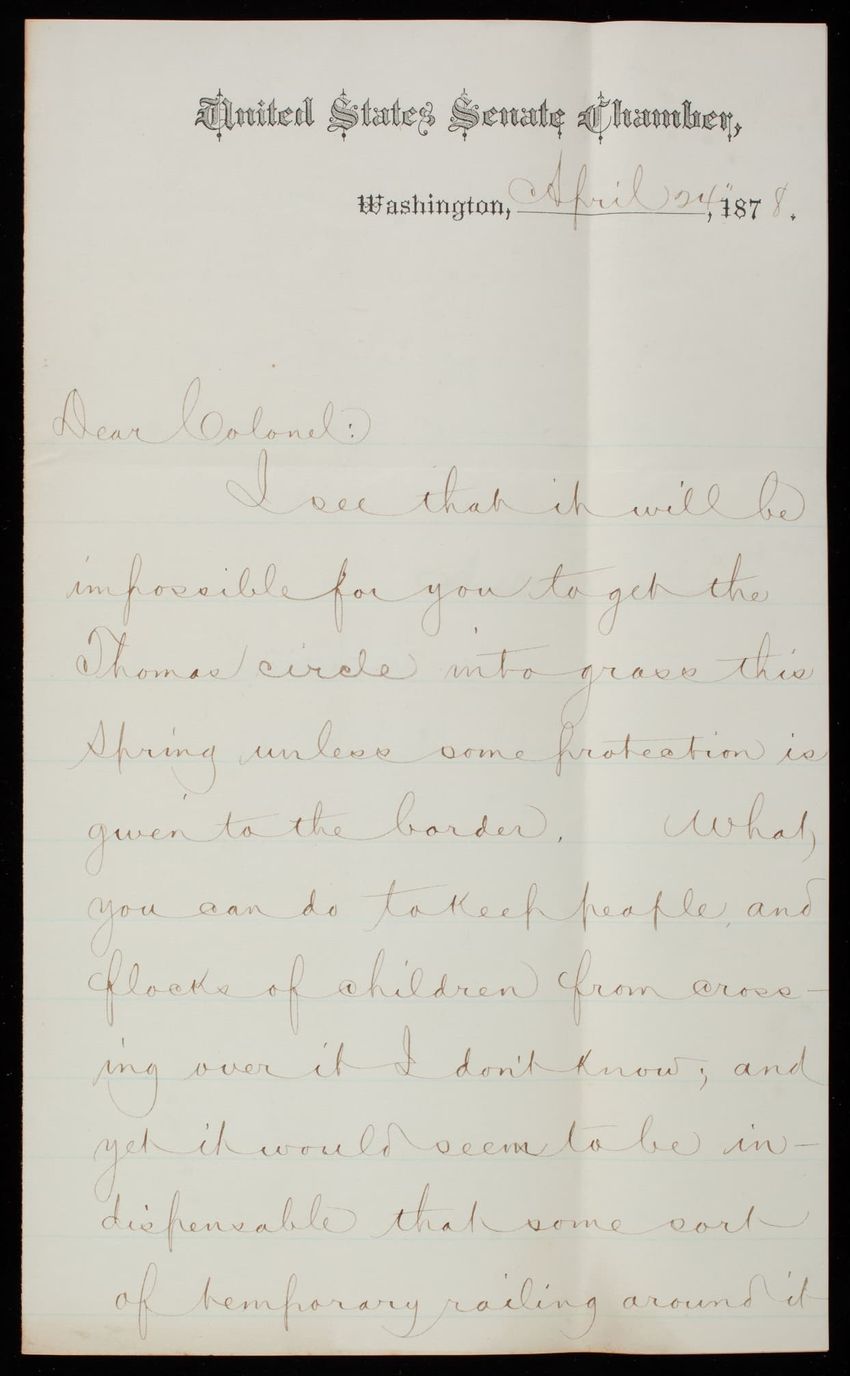 United States Senate Chamber,
Washington, April 24", 1878.
Dear Colonel:
I see that it will be
impossible for you to get the
Thomas circle into grass this
Spring unless some protection is
given to the border. What
you can do to keep people, and
flocks of children from cross-
ing over it I don't know; and
yet it would seem to be in-
dispensable that some sort
of temporary railing around it